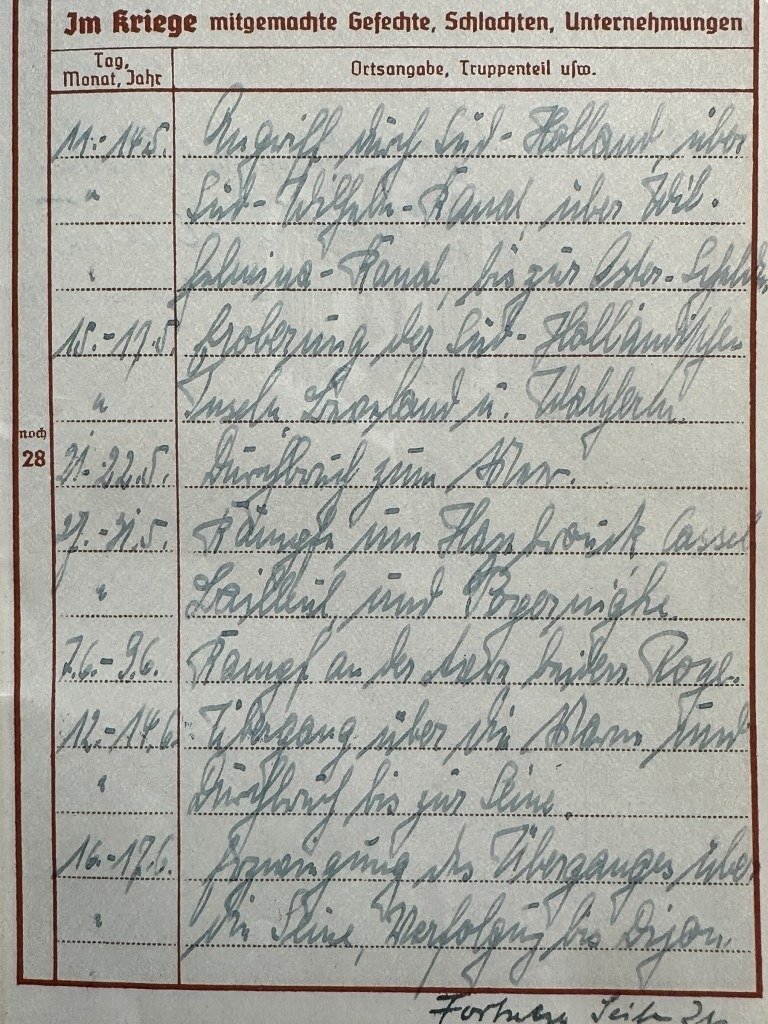 Im Kriege mitgemachte Gefechte, Schlachten, Unternehmungen
Tag, Monat, Jahr
Ortsangabe, Truppenteil usw.
11.-14.5. Angriff durch Süd-Holland, über
" Süd-Wilhelm-Kanal, über Wil-
" helmina-Kanal, bis zur Oster-Schelde.
15.-17.5. Eroberung der Süd-Holländischen
" Inseln Beveland u. Walchern.
noch 28
21.-22.5. Durchbruch zum Meer.
27.-31.5. Kämpfe um Hazebrouck Cassel
" Bailleul und
7.6.-9.6. Kampf an der Avre Roye.
12.-14.6. Übergang über die Marne und
" Durchbruch bis zur Seine.
16.-17.6. Erzwingung des Überganges über
" die Seine, Verfolgung bis Dijon.
Seite